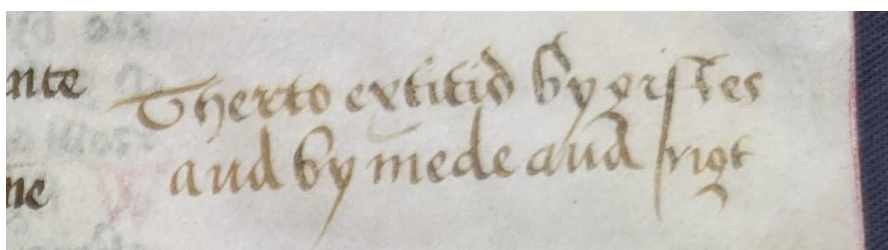 nte
Therto excitid by giftes
and by mede and
ne